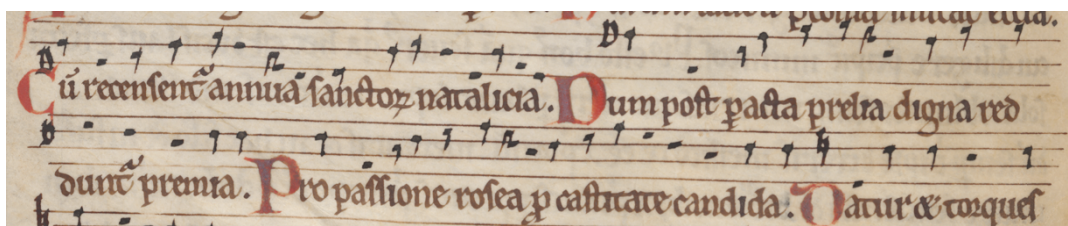 Cū recensent᷑ annua sanctoꝝ natalicia. Dum post ꝑacta prelia digna red
dunt᷑ premia. Pro passione rosea ꝓ castitate candida. Datur & torques